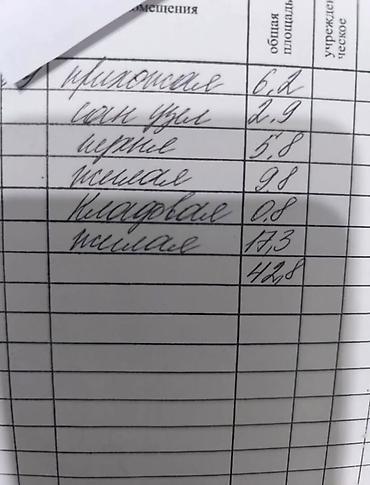 помещения
общая площадь
учрежден ческое
прихожая 6,2
сан узел 2,9
кухня 5,8
жилая 9,8
кладовая 0,8
жилая 17,3
42,8